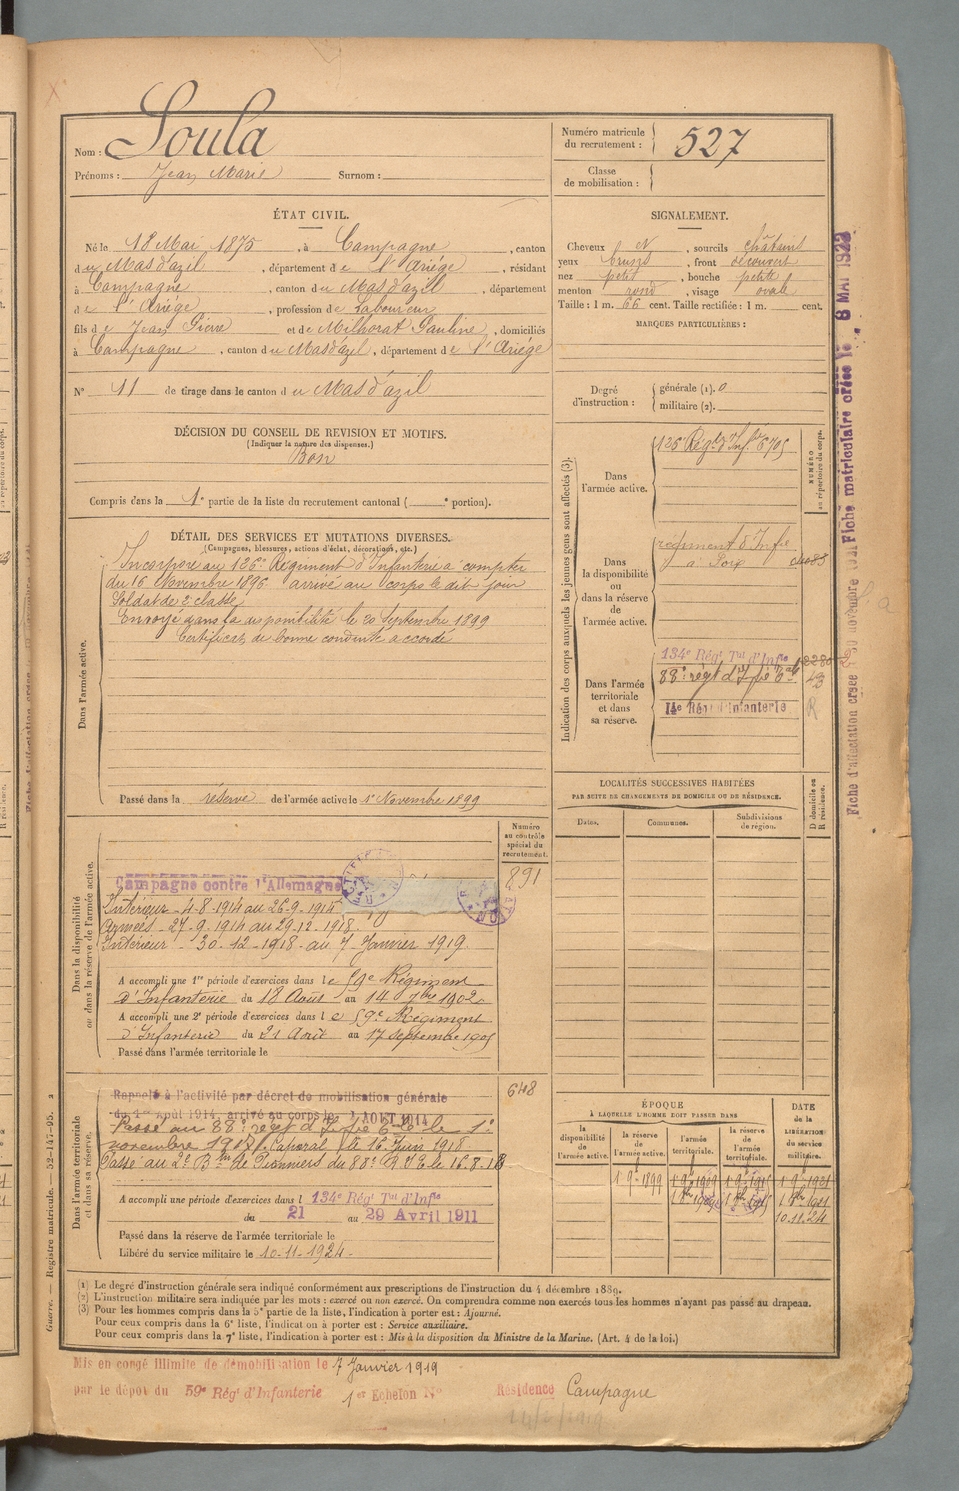 Nom : Soula
Prénoms : Jean Marie Surnom :
Numéro matricule
du recrutement : 527
Classe
de mobilisation :
ÉTAT CIVIL.
Né le 18 Mai 1875, à Campagne, canton
du Mas d'azil, département de l'Ariége, résidant
à Campagne, canton du Mas d'azil, département
de l'Ariége, profession de Laboureur
fils de Jean Pierre et de Milhorat Pauline, domiciliés
à Campagne, canton du Mas d'azil, département de l'Ariége
N° 11 de tirage dans le canton du Mas d'azil
SIGNALEMENT.
Cheveux et sourcils châtains
yeux bruns, front découvert
nez petit, bouche petite
menton rond, visage ovale
Taille : 1 m. 66 cent. Taille rectifiée : 1 m. cent.
MARQUES PARTICULIÈRES :
Degré
d'instruction :
générale (1). 0
militaire (2).
DÉCISION DU CONSEIL DE REVISION ET MOTIFS.
(Indiquer la nature des dispenses.)
Bon
Compris dans la 1e partie de la liste du recrutement cantonal ( e portion).
DÉTAIL DES SERVICES ET MUTATIONS DIVERSES.
(Campagnes, blessures, actions d'éclat, décorations, etc.)
Dans l'armée active.
Incorporé au 126e Régiment d'Infanterie à compter
du 16 Novembre 1896 arrivé au corps le dit jour
Soldat de 2e classe
Envoyé dans la disponibilité le 20 Septembre 1899
Certificat de bonne conduite accordé
Passé dans la réserve de l'armée active le 1er Novembre 1899
Indication des corps auxquels les jeunes gens sont affectés (3).
NUMÉRO
au répertoire du corps.
Dans
l'armée active.
126e Régt d'Infie 6705
Dans
la disponibilité
ou
dans la réserve
de
l'armée active.
régiment d'Infie
à Foix
Dans l'armée
territoriale
et dans
sa réserve.
134e Régt Tal d'Infie
88e régt d'Infie
14e Régt d'Infanterie
R
LOCALITÉS SUCCESSIVES HABITÉES
PAR SUITE DE CHANGEMENTS DE DOMICILE OU DE RÉSIDENCE.
Dates. Communes. Subdivisions
de région.
D domicile ou
R résidence.
Numéro
au contrôle
spécial du
recrutement.
291
Dans la disponibilité
ou dans la réserve de l'armée active.
Campagne contre l'Allemagne
Intérieur 4-8-1914 au 26-9-1914
Armées 27-9-1914 au 29-12-1918.
Intérieur 30-12-1918 au 7 Janvier 1919.
A accompli une 1re période d'exercices dans le 59e Régiment
d'Infanterie du 18 Août au 14 7bre 1902
A accompli une 2e période d'exercices dans le 59e Régiment
d'Infanterie du 21 Août au 17 septembre 1905
Passé dans l'armée territoriale le
648
Dans l'armée territoriale
et dans sa réserve.
Rappelé à l'activité par décret de mobilisation générale
du 1er Août 1914, arrivé au corps le AOUT 1914
Passé au 88e régt d'Infie le 1er
novembre 1917. Caporal le 16 Juin 1918
Passé au 2e Bon de Pionniers du 88e R.I.T. le 16.8.18
A accompli une période d'exercices dans l 134e Régt Tal d'Infie
du 21 au 29 Avril 1911
Passé dans la réserve de l'armée territoriale le
Libéré du service militaire le 10-11-1924
ÉPOQUE
À LAQUELLE L'HOMME DOIT PASSER DANS
la
disponibilité
de
l'armée active.
la réserve
de
l'armée active.
l'armée
territoriale.
la réserve
de
l'armée
territoriale.
DATE
de la
LIBÉRATION
du service
militaire.
1 9bre 1899
10.11.24
(1) Le degré d'instruction générale sera indiqué conformément aux prescriptions de l'instruction du 4 décembre 1889.
(2) L'instruction militaire sera indiquée par les mots : exercé ou non exercé. On comprendra comme non exercés tous les hommes n'ayant pas passé au drapeau.
(3) Pour les hommes compris dans la 5e partie de la liste, l'indication à porter est : Ajourné.
Pour ceux compris dans la 6e liste, l'indication à porter est : Service auxiliaire.
Pour ceux compris dans la 7e liste, l'indication à porter est : Mis à la disposition du Ministre de la Marine. (Art. 4 de la loi.)
Mis en congé illimité de démobilisation le 7 Janvier 1919
par le dépôt du 59e Régt d'Infanterie 1er Echelon N° Résidence Campagne
Guerre. — Registre matricule. — 52-147-95. 2
Fiche matriculaire créée le 8 MAI 1923
Fiche d'affectation créée